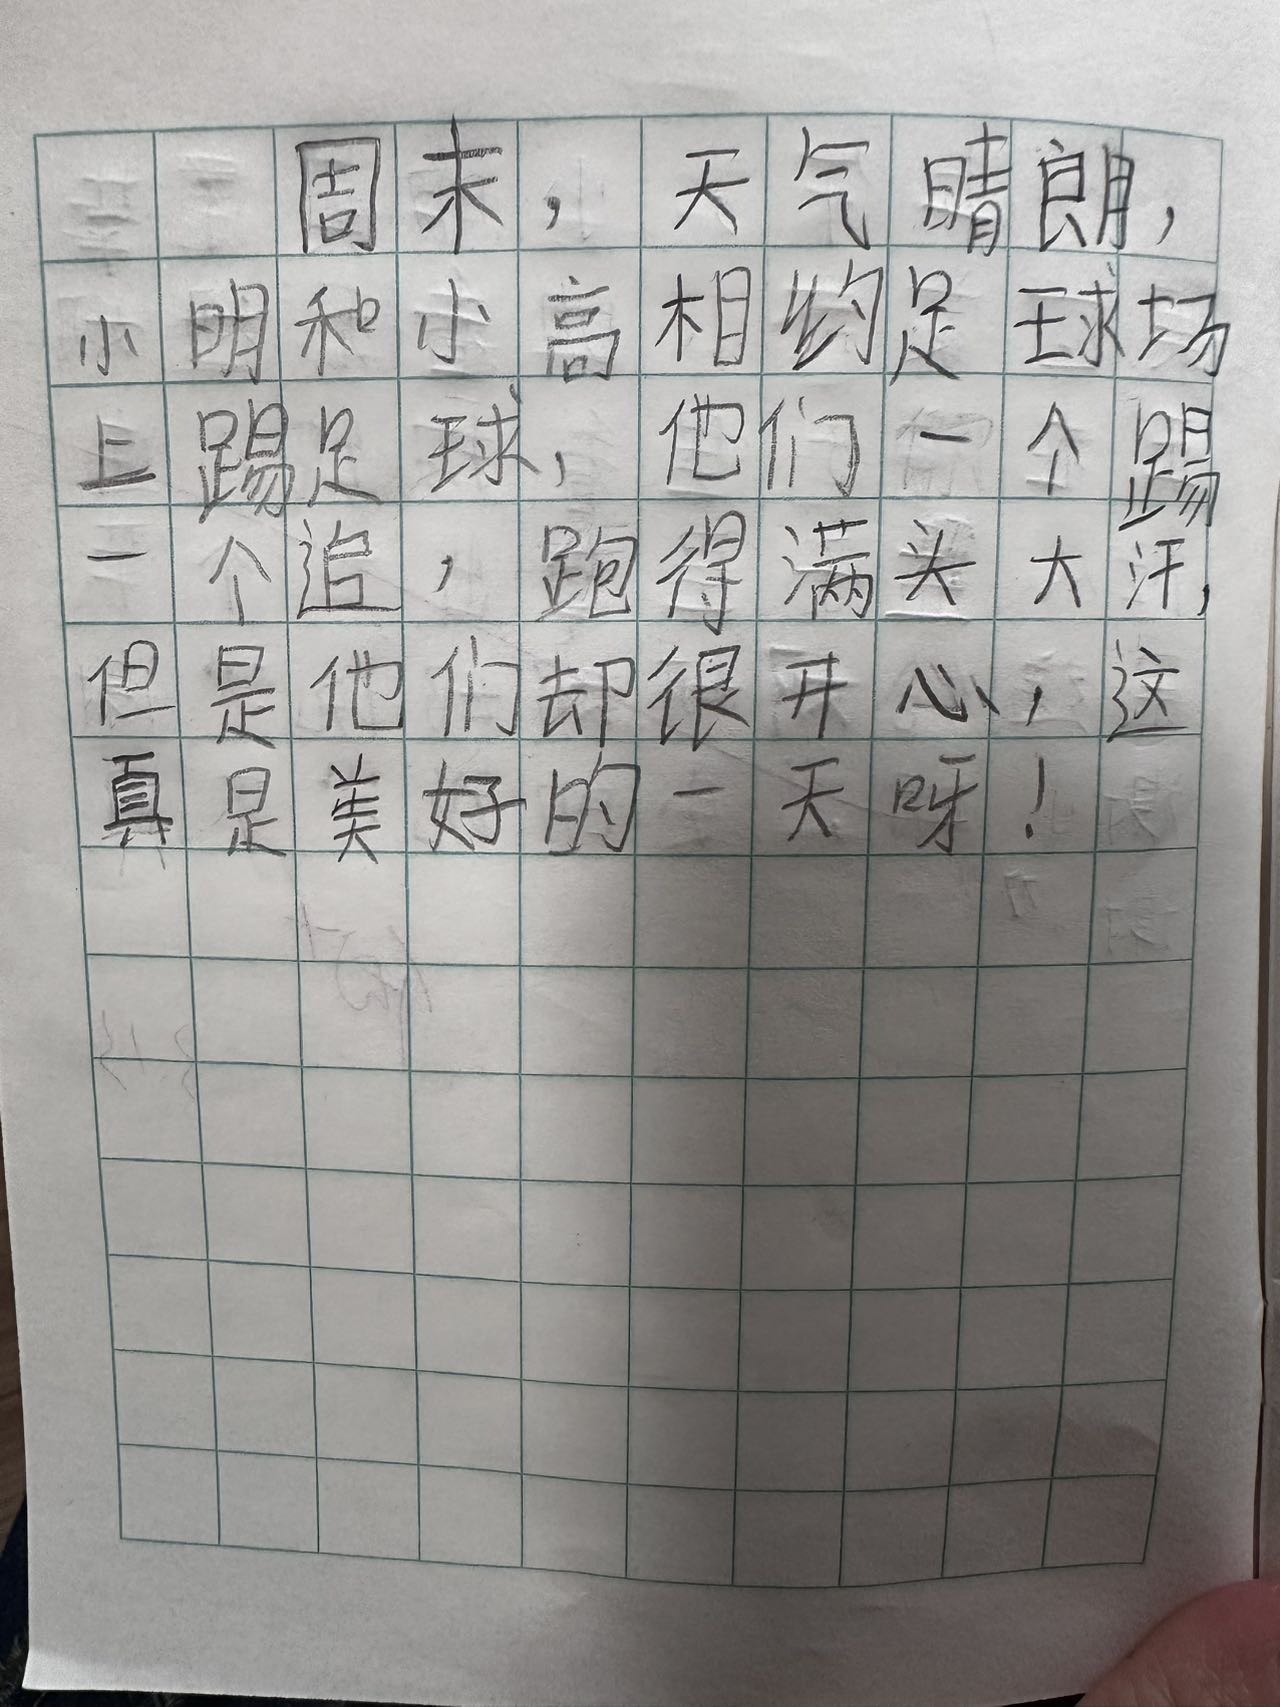 周末，天气晴朗，
小明和小高相约足球场
上踢足球，他们一个踢
一个追，跑得满头大汗，
但是他们却很开心，这
真是美好的一天呀！